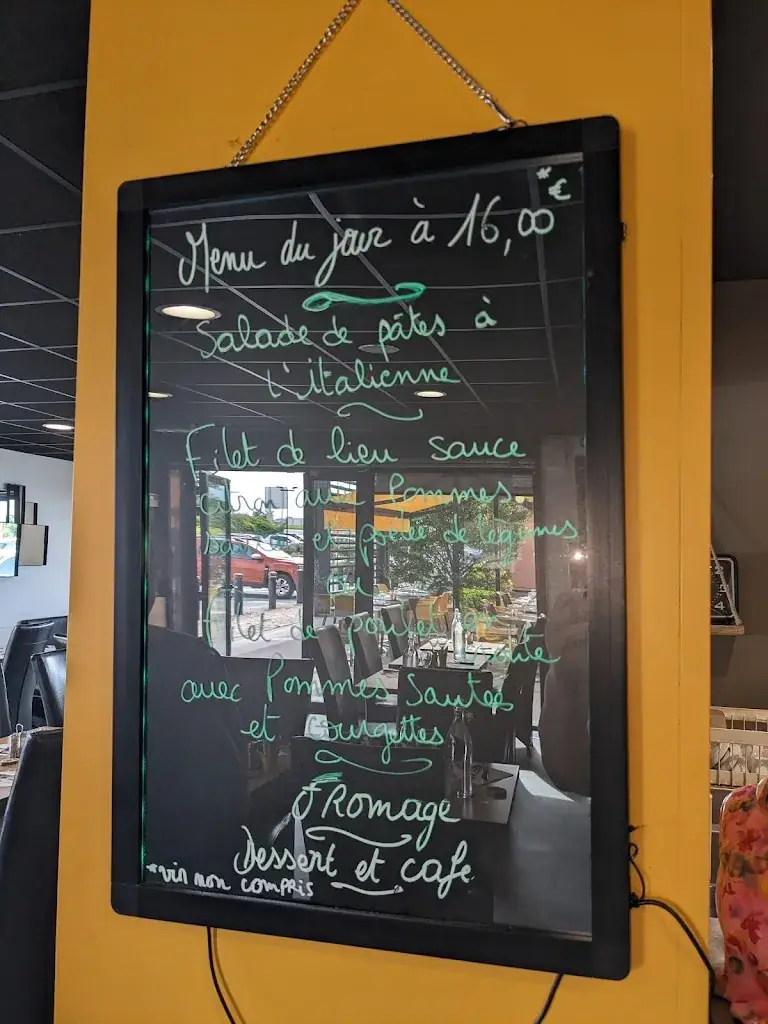 Menu du jour à 16,00*€
Salade de pâtes à
l'italienne
Filet de lieu sauce
aux Pommes
et poêlée de légumes
ou
filet de poulet en
avec Pommes Sautées
et courgettes
Fromage
Dessert et café
*vin non compris